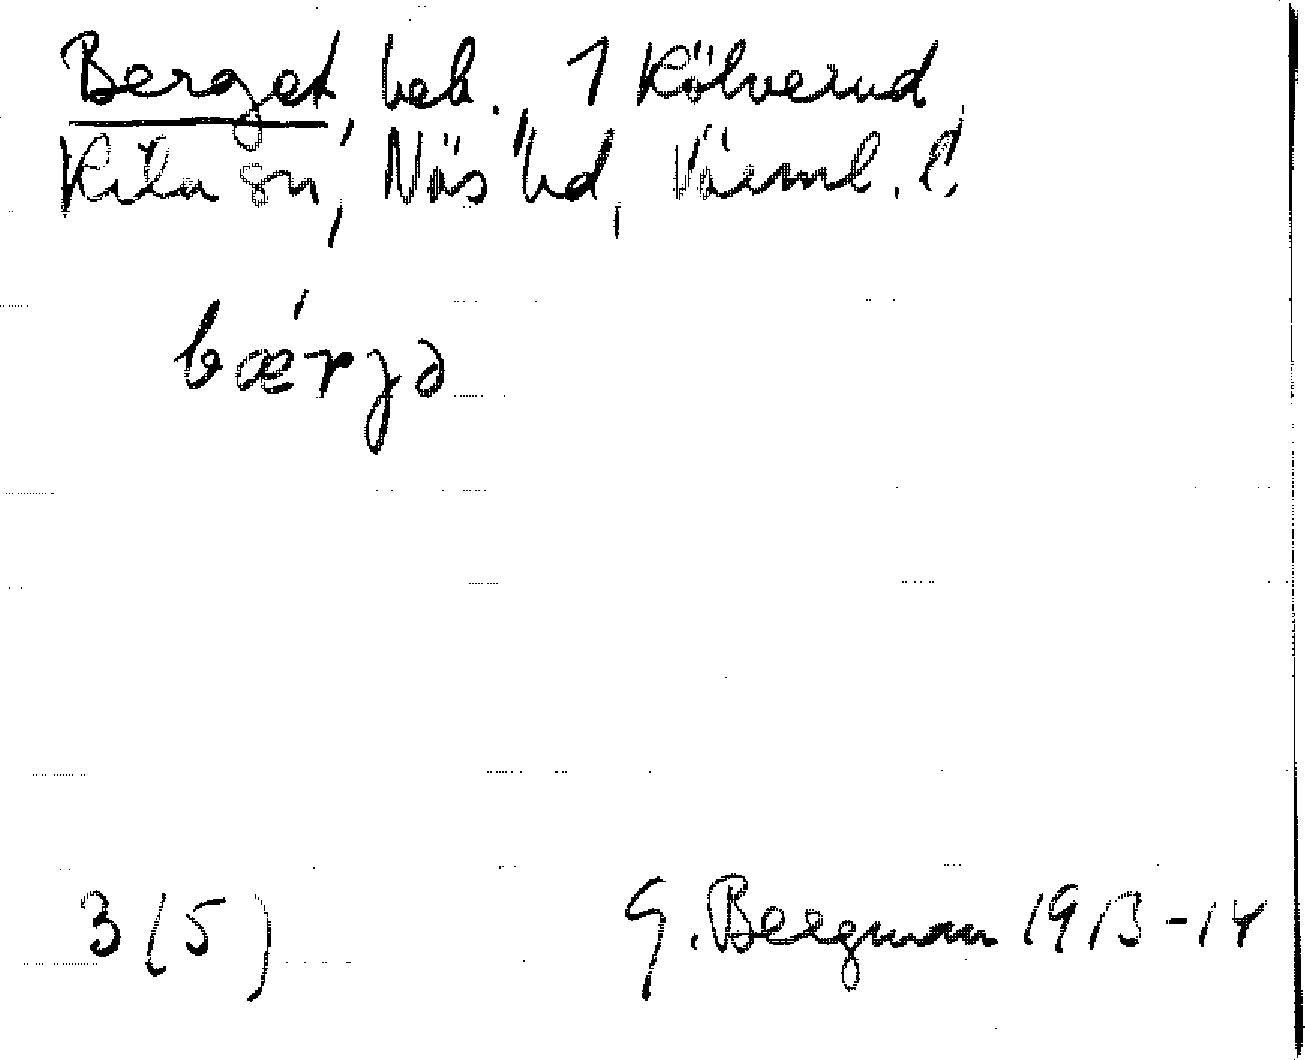 Berget, beb. 1 Kölverud,
Kila sn, Näs hd, Värml. l.
bœ́rjə
3 (5) G. Bergman 1913-14